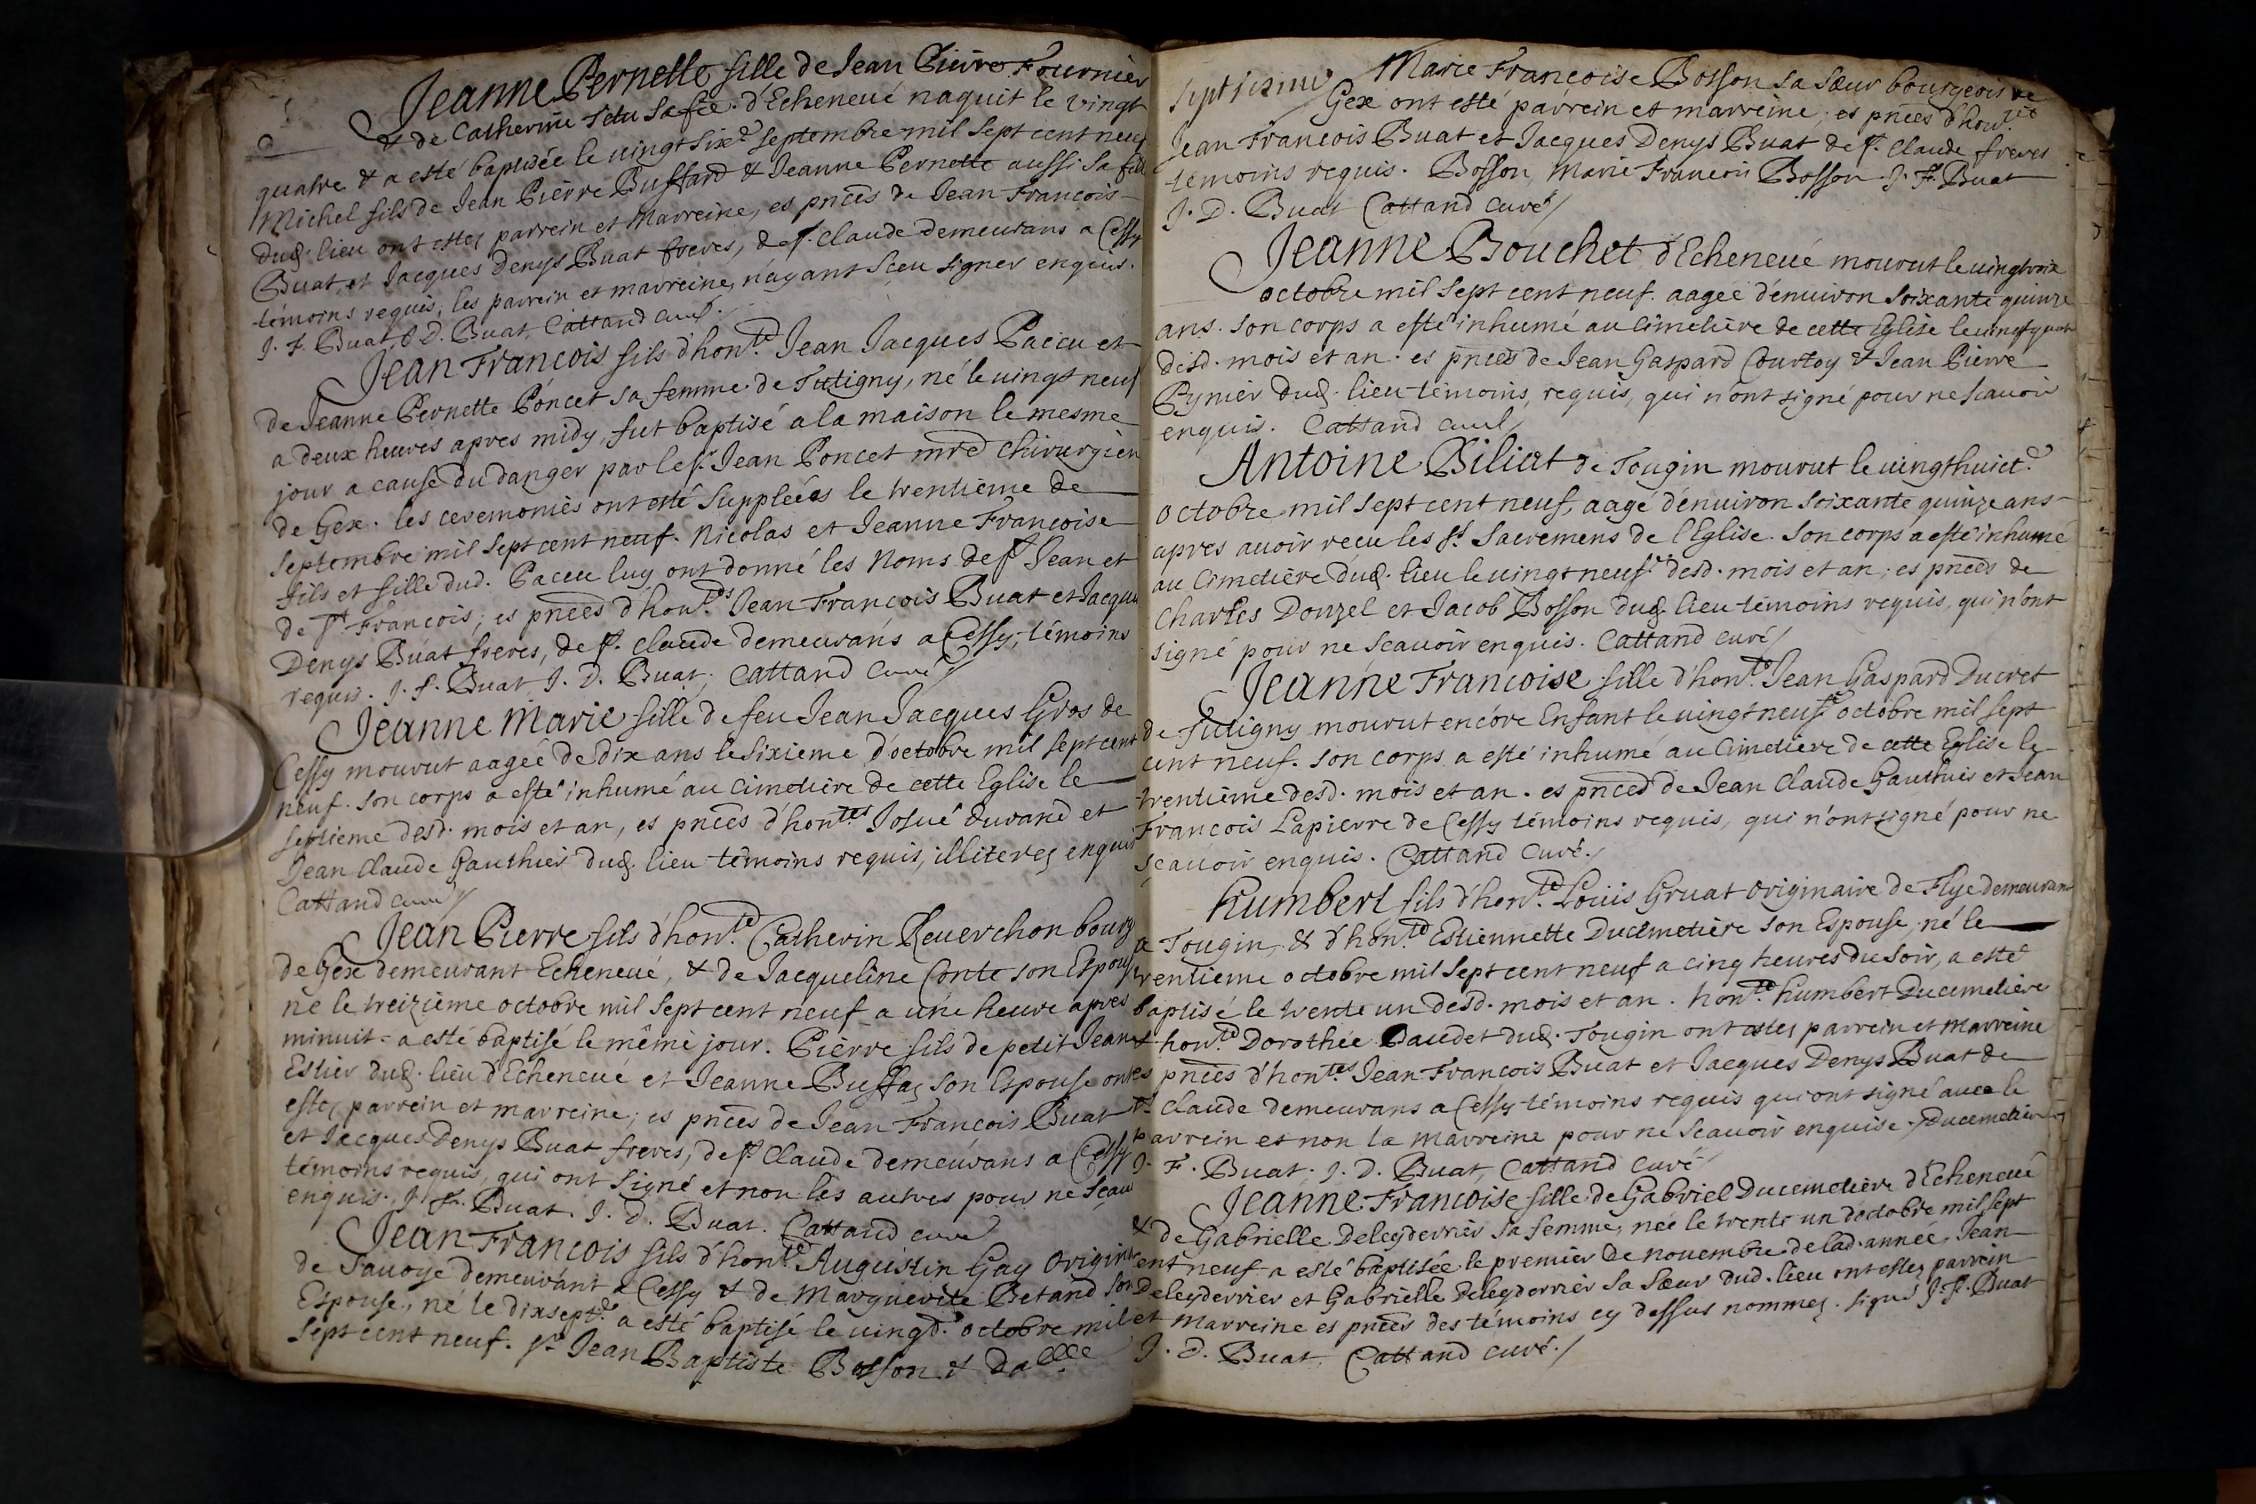 Jeanne Pernette fille de Jean Pierre Fournier
& de Catherine sa fẽe d'Echeneué naquit le vingt
quatre & a esté baptisée le vingt sixe septembre mil sept cent neuf
Michel fils de Jean Pierre Buffard & Jeanne Pernette aussi sa fille
dud. lieu ont estez parrein et marreine, es pnces de Jean François
Buat, et Jacques Denys Buat freres, de st. Claude demeurans a Cessy
témoins requis, les parrein et marreine, n'ayant sceu signer enquis.
J. F. Buat, J D. Buat, Cattand curé.
Jean François fils d'honte Jean Jacques Paccu et
de Jeanne Pernette Poncet sa femme de Tutigny, né le vingt neuf
a deux heures apres midy, fut baptisé a la maison le mesme
jour a cause du danger par le sr Jean Poncet mre chirurgien
de Gex. les ceremonies ont esté supplées le trentième de
septembre mil sept cent neuf. Nicolas et Jeanne Françoise
fils et fille dud. Paccu luy ont donné les Noms de st Jean et
de st François; es pnces d'hontes Jean François Buat et Jacques
Denys Buat freres, de st. Claude demeurans a Cessy, témoins
requis. J. f. Buat, J. D. Buat, Cattand curé
Jeanne Marie fille de feu Jean Jacques Gros de
Cessy mourut aagée de dix ans le sixieme d'octobre mil sept cent
neuf. son corps a esté inhumé au Cimetiere de cette Eglise le
septieme desd. mois et an, es pnces d'hontes Josué durand et
Jean Claude Gauthier dud. lieu témoins requis, illiterez enquis
Cattand curé
Jean Pierre fils d'honte Catherin Reverchon bourg
de Gex demeurant Echeneué, & de Jacqueline Conte son Espouse
né le treizième octobre mil sept cent neuf a une heure apres
minuit a esté baptisé le même jour. Pierre fils de petit Jean
Estier dud. lieu d'Echeneué et Jeanne Buffaz son Espouse ont
estez parrein et marreine; es pnces de Jean François Buat
et Jacques Denys Buat freres, de st Claude demeurans a Cessy
témoins requis, qui ont signé et non les autres pour ne sçav
enquis. J. f. Buat. J. D. Buat. Cattand curé
Jean François fils d'honte Augustin Gay origin
de Savoye demeurant a Cessy & de Marguerite Betand son
Espouse, né le dixsepte a esté baptisé le vingte octobre mil
sept cent neuf. sr Jean Baptiste Bosson & dalle
Marie Françoise Bosson sa sœur bourgeois de
Gex ont esté parrein et marreine, es pnces d'hontes
Jean Francois Buat et Jacques Denys Buat de st. Claude freres
témoins requis. Bosson, Marie Francoise Bosson. J. F. Buat
J. D. Buat Cattand curé
Jeanne Bouchet d'Echeneué mourut le vingtroix
octobre mil sept cent neuf. aagée d'enuiron soixante quinze
ans. son corps a esté inhumé au Cimetière de cette Eglise le vingtquatr
desd. mois et an. es pnces de Jean Gaspard Courtoy & Jean Pierre
Pynier dud. lieu témoins, requis, qui n'ont signé pour ne scauoir
enquis. Cattand curé
Antoine Biliat de Tougin mourut le vingthuicte
octobre mil sept cent neuf, aagé d'enuiron soixante quinze ans
apres auoir receu les sts Sacremens de l'Eglise. son corps a esté inhumé
au Cimetière dud. lieu le vingt neufe desd. mois et an; es pnces de
Charles Donzel et Jacob Bosson dud. lieu témoins requis, qui n'ont
signé pour ne scauoir enquis. Cattand curé
Jeanne Françoise fille d'honte Jean Gaspard Ducret
de Tutigny mourut encore Enfant le vingt neufe octobre mil sept
cent neuf. son corps a esté inhumé au Cimetiere de cette Eglise le
trentième desd. mois et an. es pnces de Jean Claude Gauthier et Jean
François Lapierre de Cessy témoins requis, qui n'ont signé pour ne
sçauoir enquis. Cattand curé.
Humbert fils d'honte Louis Gruat originaire de Flye demeurant
a Tougin, & d'honte Estiennette Ducimetière son Espouse, né le
trentieme octobre mil sept cent neuf a cinq heures du soir, a esté
baptisé le trente un desd. mois et an. honte humbert Ducimetière
& honte Dorothée Daudet dud. Tougin ont estez parrein et marreine
es pnces d'hontes Jean François Buat et Jacques Denys Buat de
st Claude demeurans a Cessy témoins requis qui ont signé auec le
parrein et non la marreine pour ne scauoir enquise. Ducimetière
J. F. Buat. J. D. Buat, Cattand curé
Jeanne Françoise fille de Gabriel Ducimetière d'Echeneué
& de Gabrielle Deleyderrier sa femme, née le trente un d'octobre mil sept
cent neuf a esté baptisée le premier de nouembre de lad. année, Jean
Deleyderrier et Gabrielle Deleyderrier sa sœur dud. lieu ont estez parrein
et marreine es pnces des témoins cy dessus nommez. signé J. f. Buat
J. D. Buat, Cattand curé.